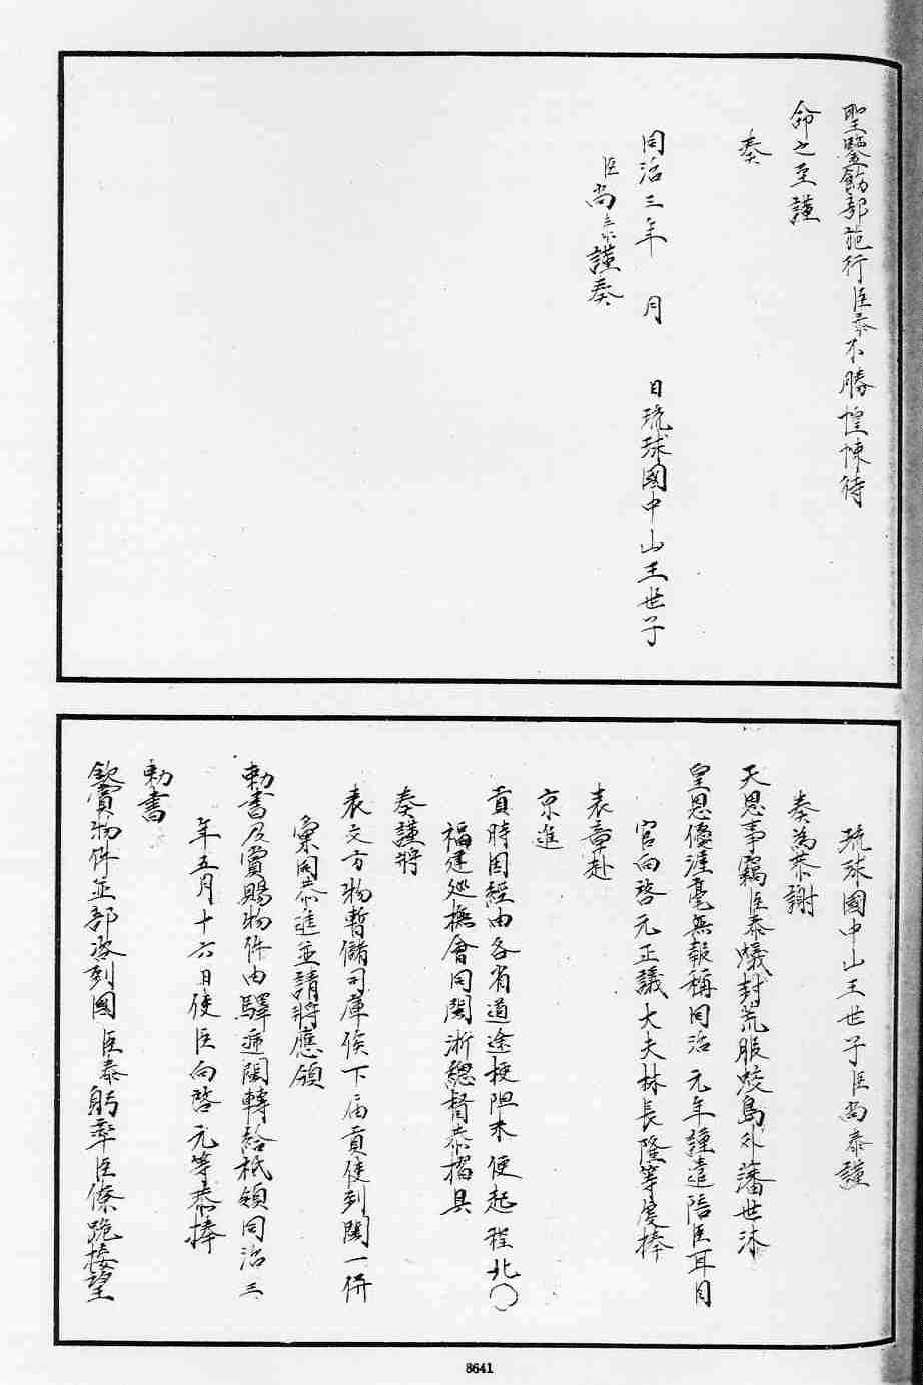 聖鑒飭部施行臣泰不勝惶悚待
命之至謹
奏
同治三年　月　　日琉球國中山王世子
臣尚泰謹奏
琉球國中山王世子臣尚泰謹
奏為恭謝
天恩事竊臣泰蟻封荒服蛟島外藩世沐
皇恩優渥毫無報稱同治元年謹遣陪臣耳目
官向啓元正議大夫林長隆等虔捧
表章赴
京進
貢時因經由各省道途梗阻未便起程北〇
福建巡撫會同閩浙總督恭摺具
奏謹將
表文方物暫儲司庫俟下届貢使到閩一併
彙同恭進並請將應領
勅書及賞賜物件由驛遞閩轉給祗領同治三
年五月十六日使臣向啓元等恭捧
勅書
欽賞物件並部咨到國臣泰躬率臣僚跪接望
8641